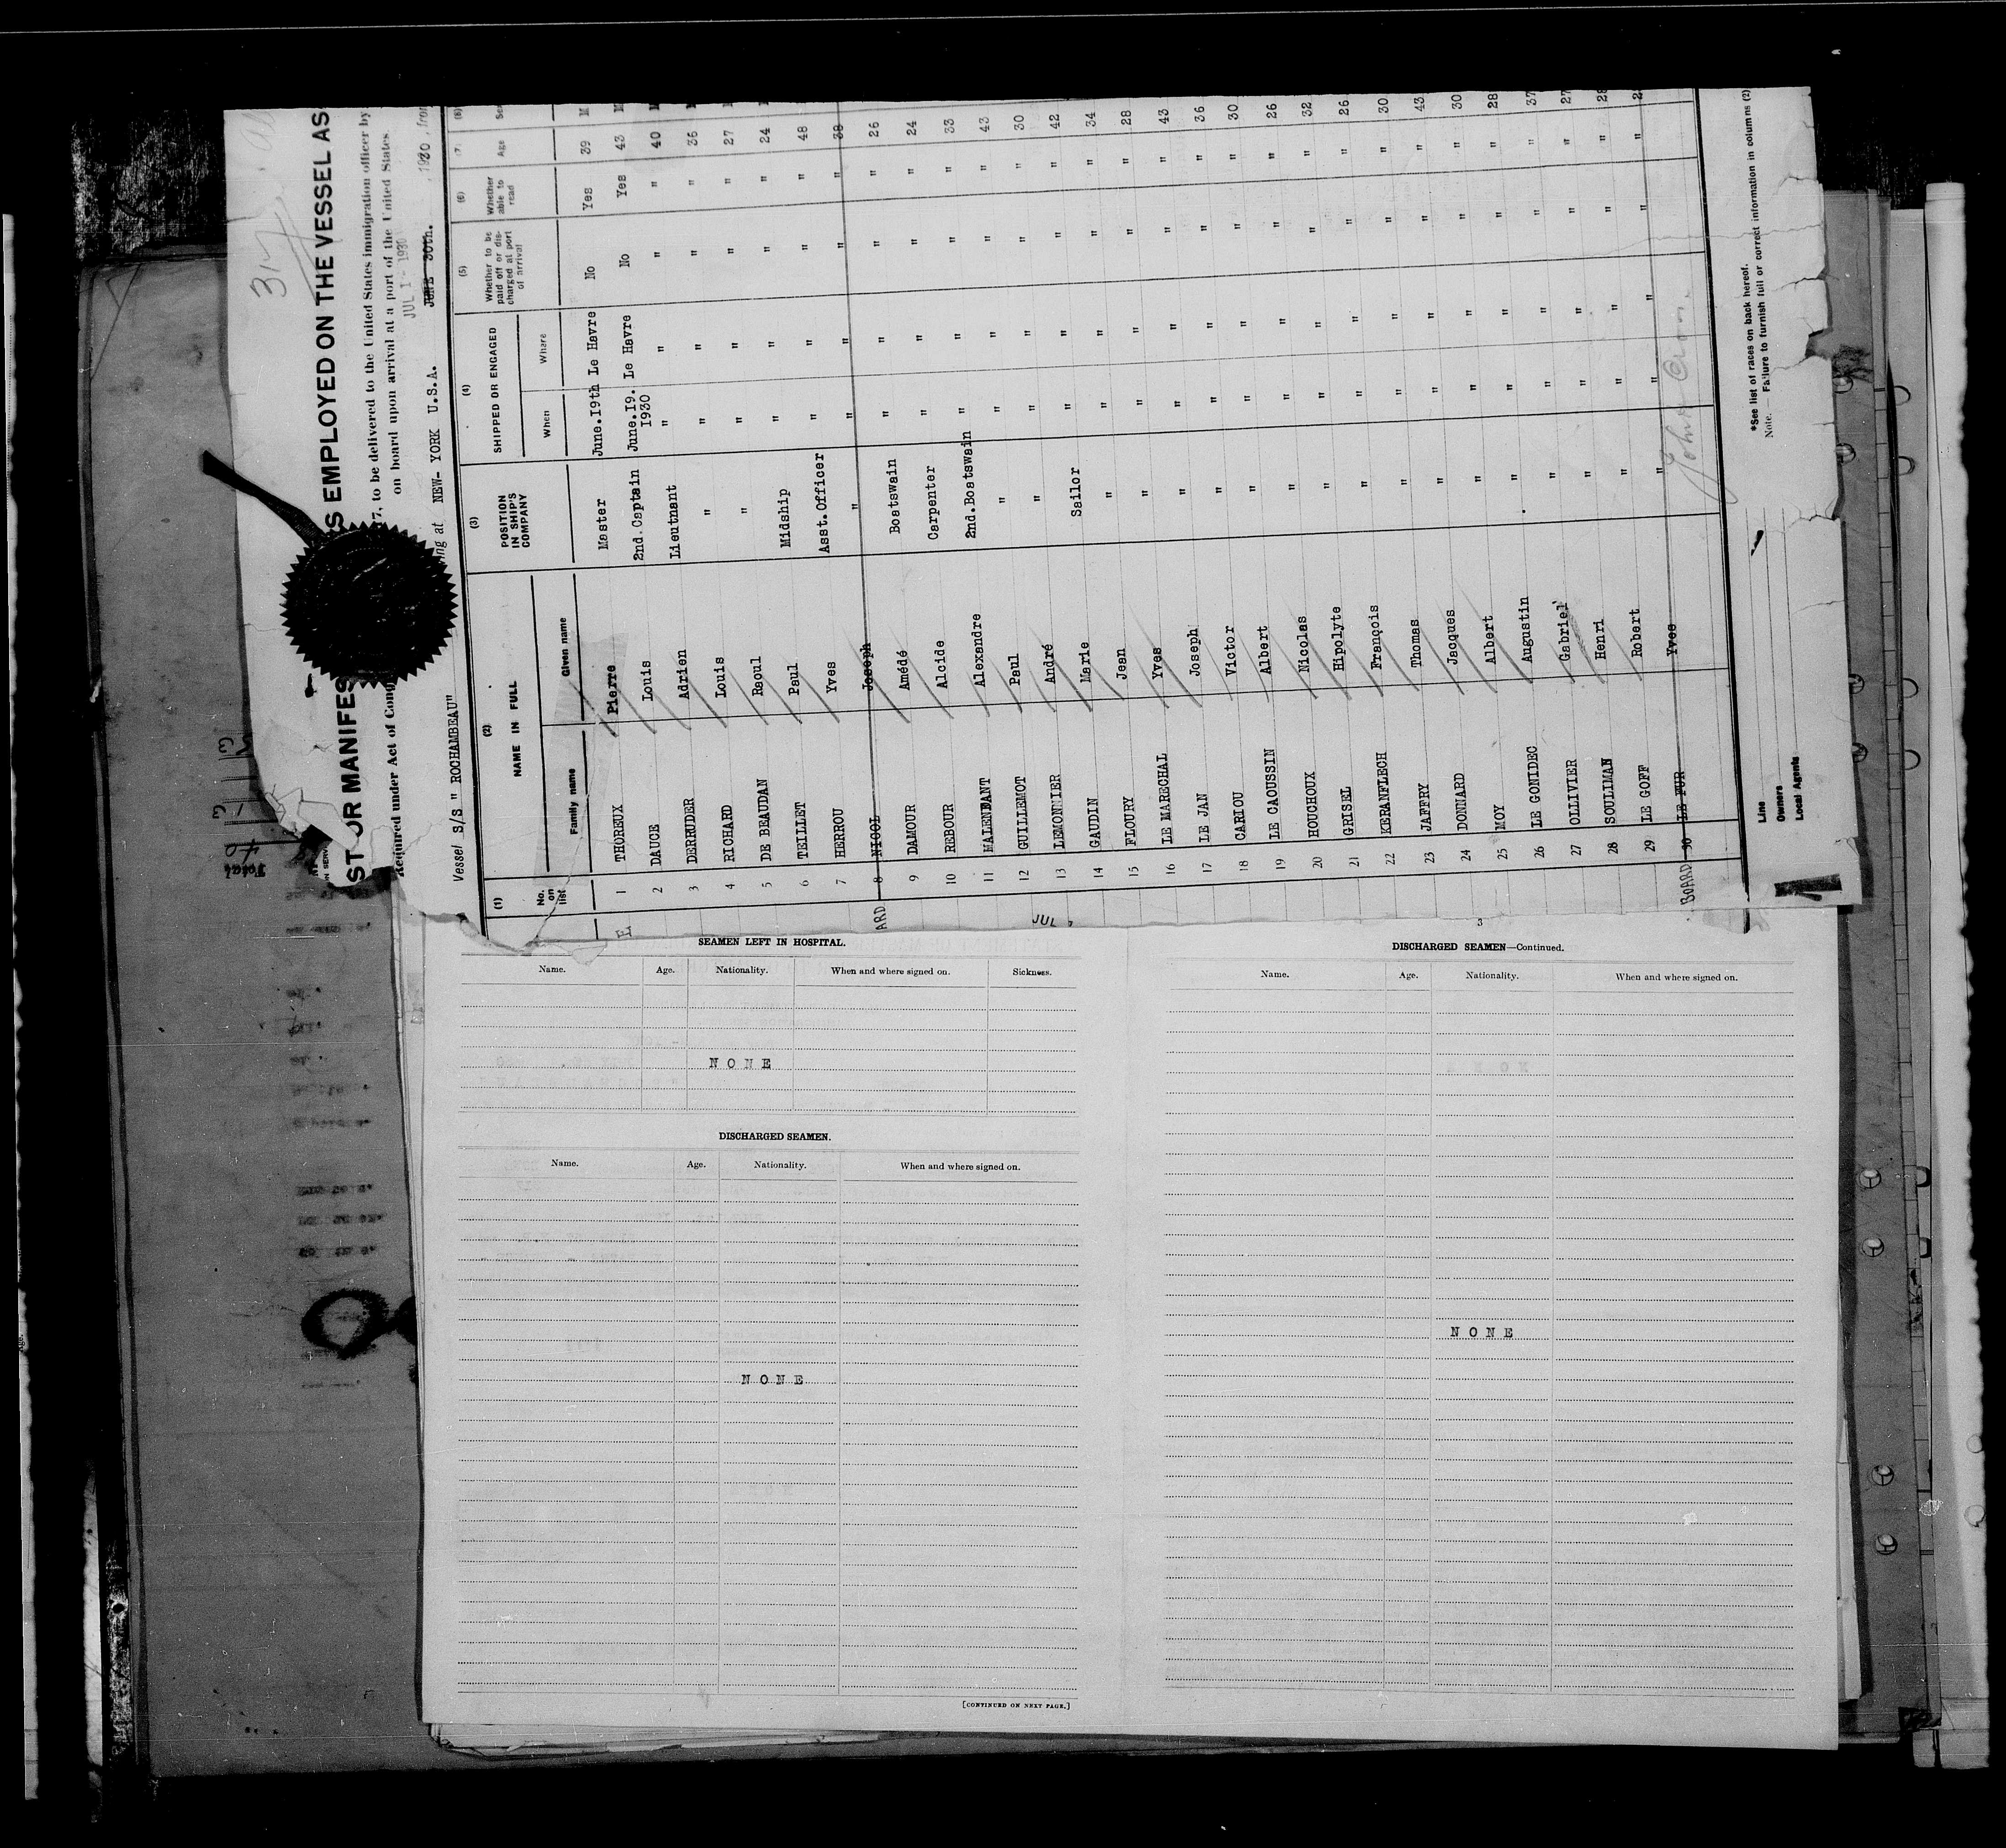 ST OR MANIFES S EMPLOYED ON THE VESSEL AS
Required under Act of Cong 17, to be delivered to the United States immigration officer by
on board upon arrival at a port of the United States
JUL 1 - 1930
Vessel S/S " ROCHAMBEAU" ing at NEW- YORK U.S.A. JUNE 30th. , 1930 , from
(1) (2) (3) (4) (5) (6) (7) (8)
No. on list NAME IN FULL POSITION IN SHIP'S COMPANY SHIPPED OR ENGAGED Whether to be paid off or discharged at port of arrival Whether able to read Age Sex
Family name Given name When Where
1 THOREUX Pierre Master June.19th Le Havre No Yes 39 M
2 DAUCE Louis 2nd.Captain June.19.1930 Le Havre No Yes 43 M
3 DERRUDER Adrien Lieutnant " " " " 40
4 RICHARD Louis " " " " " 36
5 DE BEAUDAN Raoul " " " " " 27
6 TEILLET Paul Midship " " " " 24
7 HERROU Yves Asst.Officer " " " " 48
8 NICOL Joseph " " " " " 38
9 DAMOUR Amédé Boatswain " " " " 26
10 REBOUR Alcide Carpenter " " " " 24
11 MALENFANT Alexandre 2nd.Boatswain " " " " 33
12 GUILLEMOT Paul " " " " " 43
13 LEMONNIER André " " " " " 30
14 GAUDIN Marie Sailor " " " " 42
15 FLOURY Jean " " " " " 34
16 LE MARECHAL Yves " " " " " 28
17 LE JAN Joseph " " " " " 43
18 CARIOU Victor " " " " " 36
19 LE GAOUSSIN Albert " " " " " 30
20 HOUCHOUX Nicolas " " " " " 26
21 GRISEL Hipolyte " " " " " 32
22 KBRANFLECH François " " " " " 26
23 JAFFRY Thomas " " " " " 30
24 DONNARD Jacques " " " " " 43
25 MOY Albert " " " " " 30
26 LE GONIDEC Augustin " " " " " 28
27 OLLIVIER Gabriel " " " " " 37
28 SOULIMAN Henri " " " " " 27
29 LE GOFF Robert " " " " " 28
BOARD 30 LE FUR Yves " " " " "
Line
Owners
Local Agents
*See list of races on back hereof.
Note. — Failure to furnish full or correct information in columns (2)
JUL
Total
SEAMEN LEFT IN HOSPITAL.
Name. Age. Nationality. When and where signed on. Sickness.
NONE
DISCHARGED SEAMEN.
Name. Age. Nationality. When and where signed on.
NONE
[CONTINUED ON NEXT PAGE.]
3
DISCHARGED SEAMEN—Continued.
Name. Age. Nationality. When and where signed on.
NONE